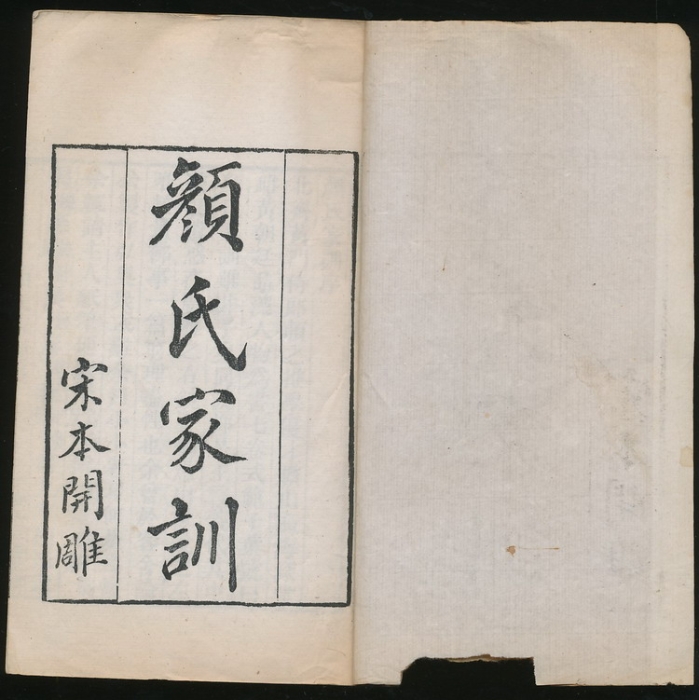 顔氏家訓
宋本開雕